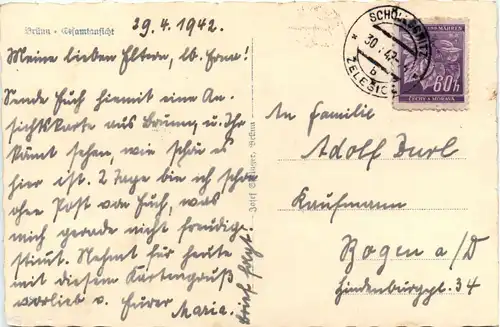 Brünn - Gesamtansicht
29.4.1942.
Meine lieben Eltern, lb. Erna!
Sende Euch hiemit eine An-
sichtskarte aus Brünn, u. Ihr
könnt sehen, wie schön es
hier ist. 2 Tage bin ich schon
ohne Post von Euch, was
mich gerade nicht freudig
stimt. Nehmt für heute
mit diesem Kartengruß
vorlieb v. Eurer
Maria.
Brief folgt.
Brünn
SCHÖLLSCHITZ
30. 42
b
ŽELEŠICE
MÄHREN
60h
ČECHY A MORAVA
An Familie
Adolf
Kaufmann
Bogen a/D
Hindenburgpl. 34